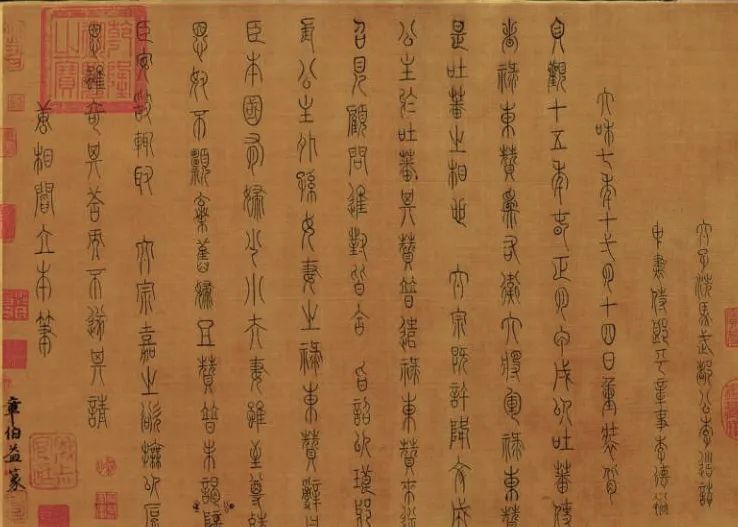 太子洗馬武都公李道誌
中書侍郎平章事李德裕
大和七年十一月十四日重裝背
貞觀十五年春正月甲戌以吐蕃使
者祿東贊為右衛大將軍祿東贊
是吐蕃之相也 太宗既許降文成
公主於吐蕃其贊普遣祿東贊來逆
召見顧問進對皆合 旨詔以琅琊
長公主外孫女妻之祿東贊辭曰
臣本國有婦少小夫妻雖至尊殊
恩奴不願棄舊婦且贊普未謁陛
臣安敢輒取 太宗嘉之欲撫以厚
恩雖奇其答而不遂其請
唐相閻立本筆
章伯益篆